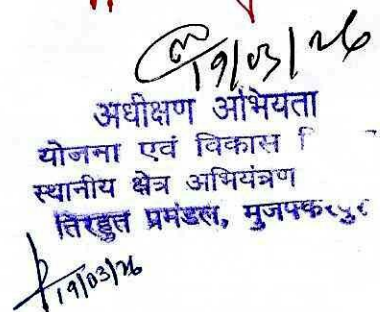 19/03/26
अधीक्षण अभियंता
योजना एवं विकास वि
स्थानीय क्षेत्र अभियंत्रण
तिरहुत प्रमंडल, मुजफ्फरपुर
19/03/26